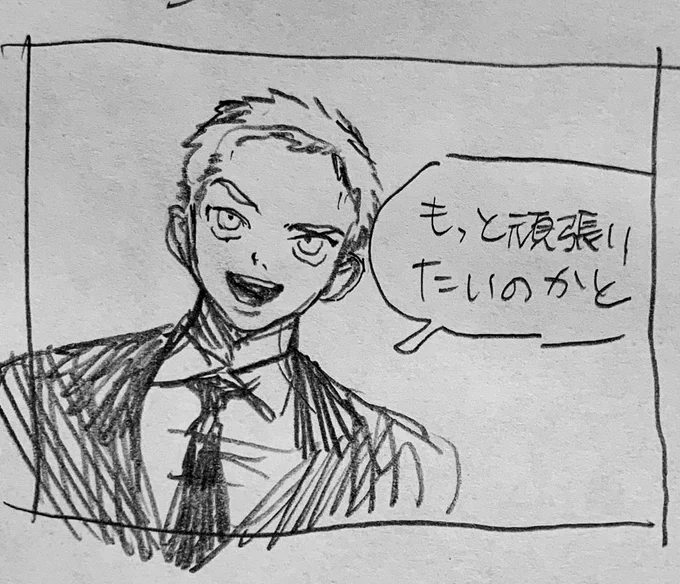 もっと頑張り
たいのかと